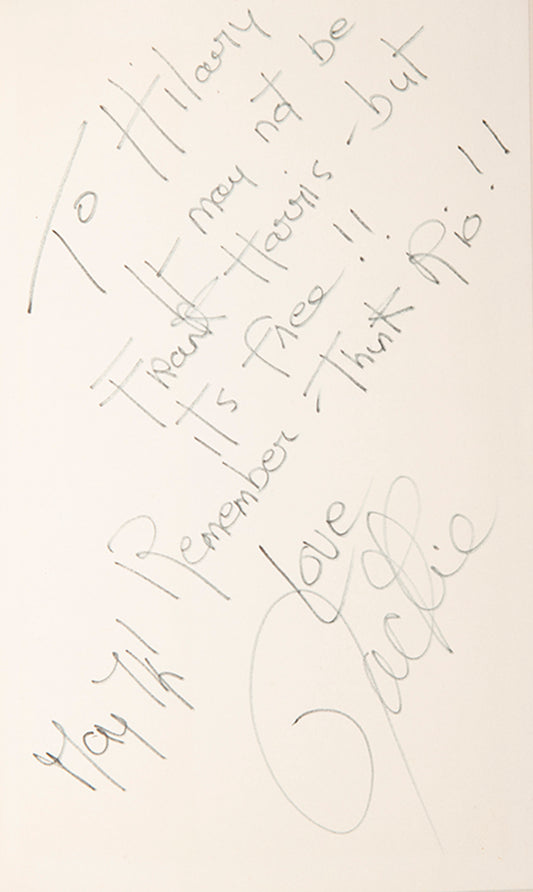 To Hilary
It may not be
Frank Harris - but
its free!!
Remember - Think Rio!!
Love
Jackie
May 7th